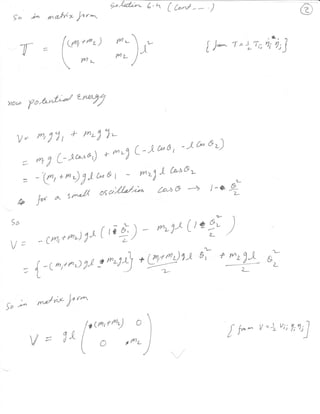 Solution 6.4 (cont---) ②
So in matrix form
T = ( (m₁+m₂) m₂ ; m₂ m₂ ) l² [from T = ½ Tᵢⱼ η̇ᵢ η̇ⱼ]
now potential Energy
V = m₁gy₁ + m₂gy₂
= m₁g (-l cosθ₁) + m₂g (-l cosθ₁ - l cosθ₂)
= -(m₁+m₂)gl cosθ₁ - m₂gl cosθ₂
for a small oscillation cosθ → 1-θ²/2
So
V = -(m₁+m₂)gl (1-θ₁²/2) - m₂gl (1-θ₂²/2)
= {-(m₁+m₂)gl - m₂gl} + (m₁+m₂)gl/2 θ₁² + m₂gl/2 θ₂²
So in matrix form
V = gl ( (m₁+m₂) 0 ; 0 m₂ ) [from V = ½ Vᵢⱼ ηᵢ ηⱼ]